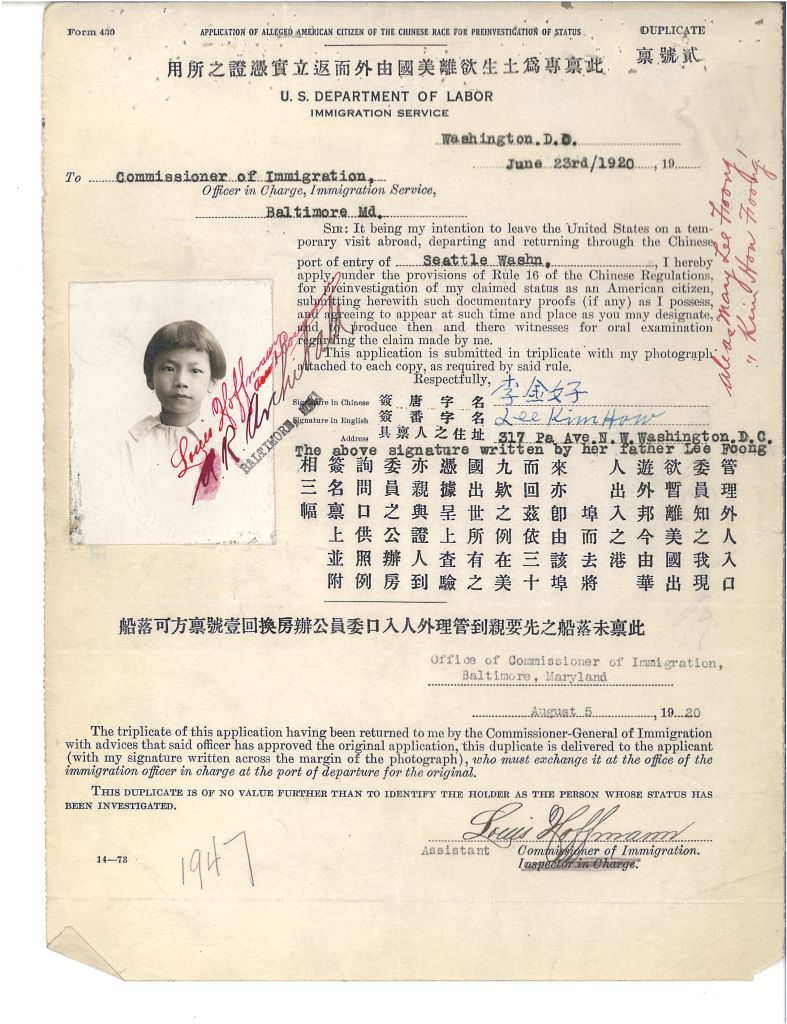 Form 430
APPLICATION OF ALLEGED AMERICAN CITIZEN OF THE CHINESE RACE FOR PREINVESTIGATION OF STATUS
DUPLICATE
貳號禀
此禀專爲土生欲離美國由外而返立實憑證之所用
U. S. DEPARTMENT OF LABOR
IMMIGRATION SERVICE
Washington.D.C.
June 23rd/1920, 19
To Commissioner of Immigration,
Officer in Charge, Immigration Service,
Baltimore Md.
alias Mary Lee Foong!
" Kim How Foong!
SIR: It being my intention to leave the United States on a tem-
porary visit abroad, departing and returning through the Chinese
port of entry of Seattle Washn, , I hereby
apply, under the provisions of Rule 16 of the Chinese Regulations,
for preinvestigation of my claimed status as an American citizen,
submitting herewith such documentary proofs (if any) as I possess,
and agreeing to appear at such time and place as you may designate,
and to produce then and there witnesses for oral examination
regarding the claim made by me.
This application is submitted in triplicate with my photograph
attached to each copy, as required by said rule.
Respectfully,
Louis Hoffmann
BALTIMORE, MD.
Signature in Chinese 簽唐字名 李金好
Signature in English 簽番字名 Lee Kim How
Address 具禀人之住址 317 Pa Ave.N.W.Washington.D.C.
The above signature written by her father Lee Foong
管理外人入口
委員知之我現
欲暫離美國出
遊外邦今由華
人出入之港
埠而去將
來亦卽由該埠
而回茲依三十
九欵之例在美
國出世所有之
憑據呈上查驗
亦親與證人到
委員之公辦房
詢問口供照例
簽名禀上並附
相三幅
此禀未落船之先要親到管理外人入口委員公辦房換回壹號禀方可落船
Office of Commissioner of Immigration,
Baltimore, Maryland
August 5, 1920
The triplicate of this application having been returned to me by the Commissioner-General of Immigration
with advices that said officer has approved the original application, this duplicate is delivered to the applicant
(with my signature written across the margin of the photograph), who must exchange it at the office of the
immigration officer in charge at the port of departure for the original.
THIS DUPLICATE IS OF NO VALUE FURTHER THAN TO IDENTIFY THE HOLDER AS THE PERSON WHOSE STATUS HAS
BEEN INVESTIGATED.
Louis Hoffmann
Assistant Commissioner of Immigration.
Inspector in Charge.
14—73
1947